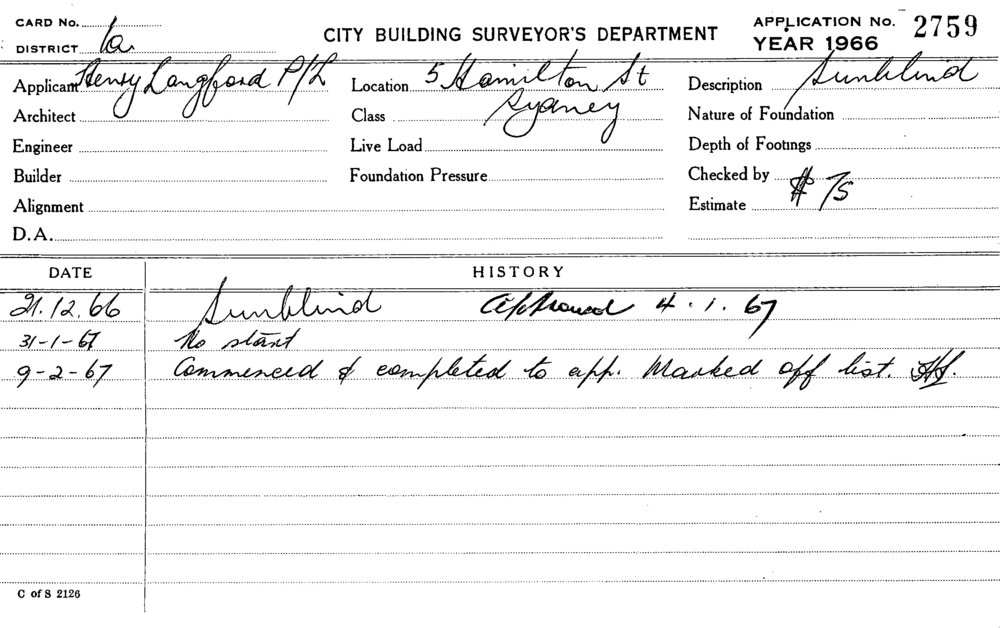 CARD No.
DISTRICT 1a
CITY BUILDING SURVEYOR'S DEPARTMENT
APPLICATION No. 2759
YEAR 1966
Applicant Henry Langford P/L
Location 5 Hamilton St
Sydney
Description Sunblind
Architect
Class
Nature of Foundation
Engineer
Live Load
Depth of Footings
Builder
Foundation Pressure
Checked by
Alignment
Estimate $ 75
D.A.
DATE HISTORY
21.12.66 Sunblind Approved 4.1.67
31-1-67 No start
9-2-67 Commenced & completed to app. Marked off list.
C of S 2126